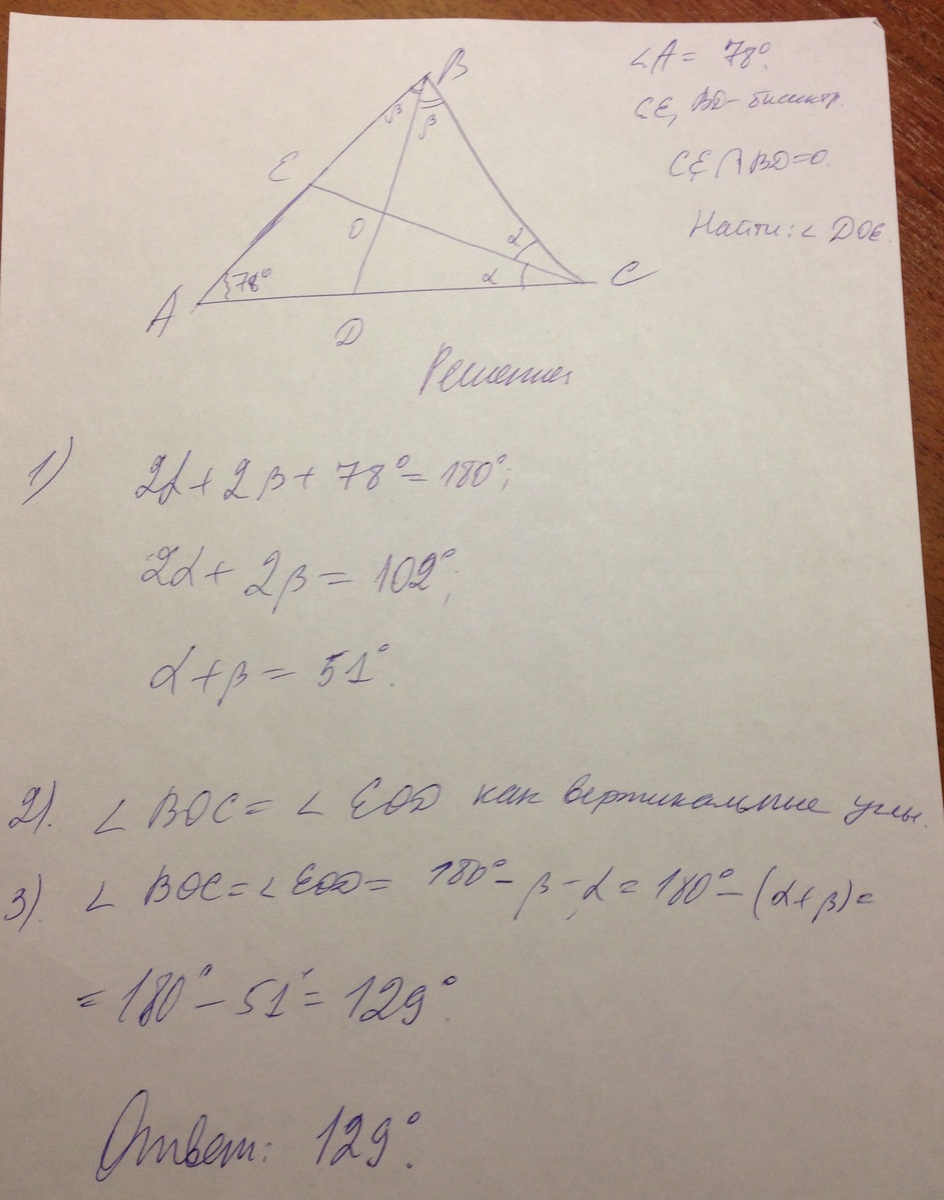 B
∠A = 78°.
CE, BD - биссектр.
β
β
E
CE ∩ BD = O.
O
Найти: ∠ DOE.
α
78°
α
C
A
D
Решение
1) 2α + 2β + 78° = 180°;
2α + 2β = 102°;
α + β = 51°.
2). ∠ BOC = ∠ EOD как вертикальные углы.
3). ∠ BOC = ∠ EOD = 180° - β - α = 180° - (α + β) =
= 180° - 51° = 129°.
Ответ: 129°.